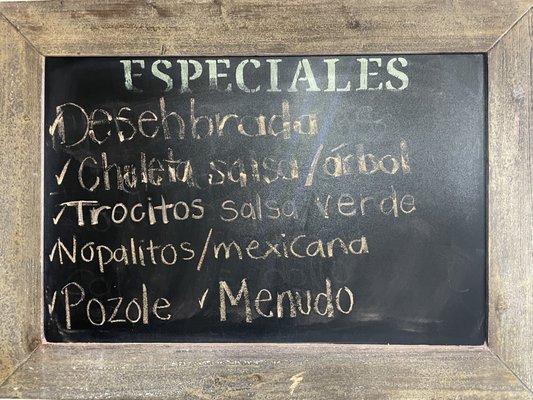 ESPECIALES
✓Desehbrada
✓Chuleta salsa/árbol
✓Trocitos salsa verde
✓Nopalitos/mexicana
✓Pozole ✓Menudo